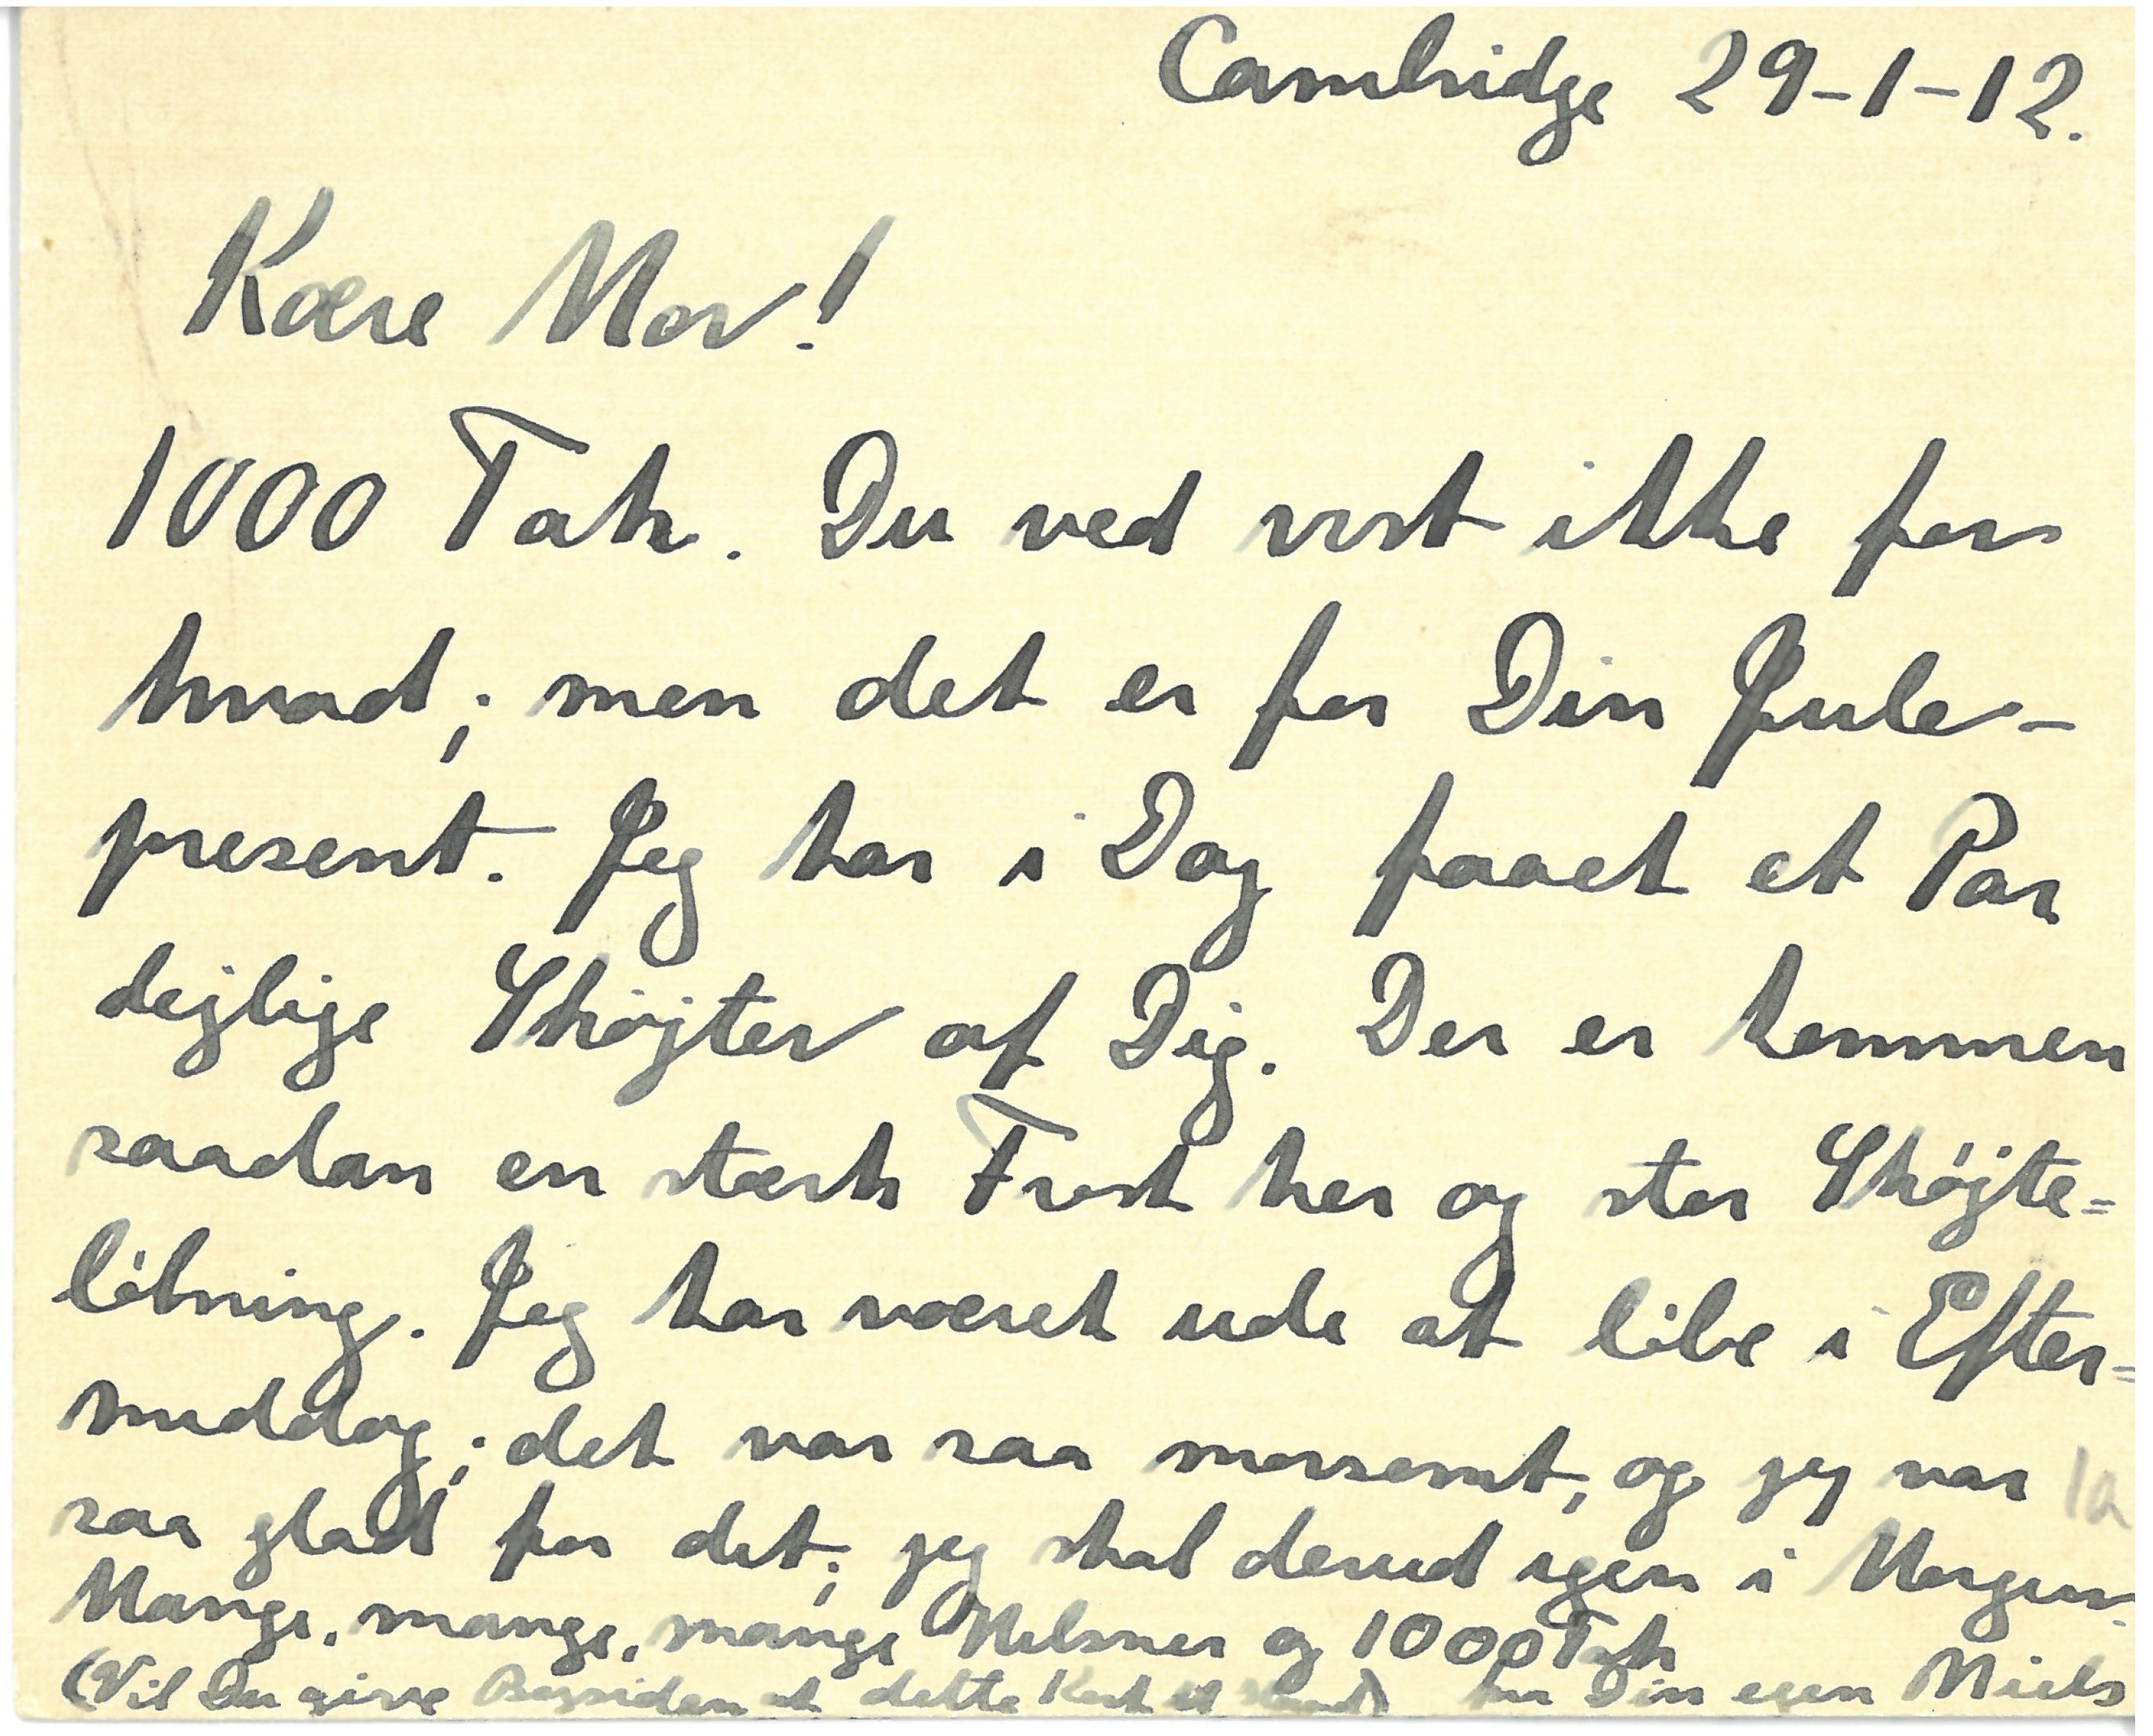 Cambridge 29-1-12.
Kære Mor!
1000 Tak. Du ved vist ikke for
hvad; men det er for Din Jule-
present. Jeg har i Dag faaet et Par
dejlige Skøjter af Dig. Der er kommen
saadan en stærk Frost her og stor Skøjte=
løbning. Jeg har været ude at løbe i Efter=
middag; det var saa morsomt, og jeg var
saa glad for det; jeg skal derud igen i Morgen.
Mange, mange, mange Hilsner og 1000 Tak
(Vil Du give Bagsiden af dette Kort et fra Din egen Niels